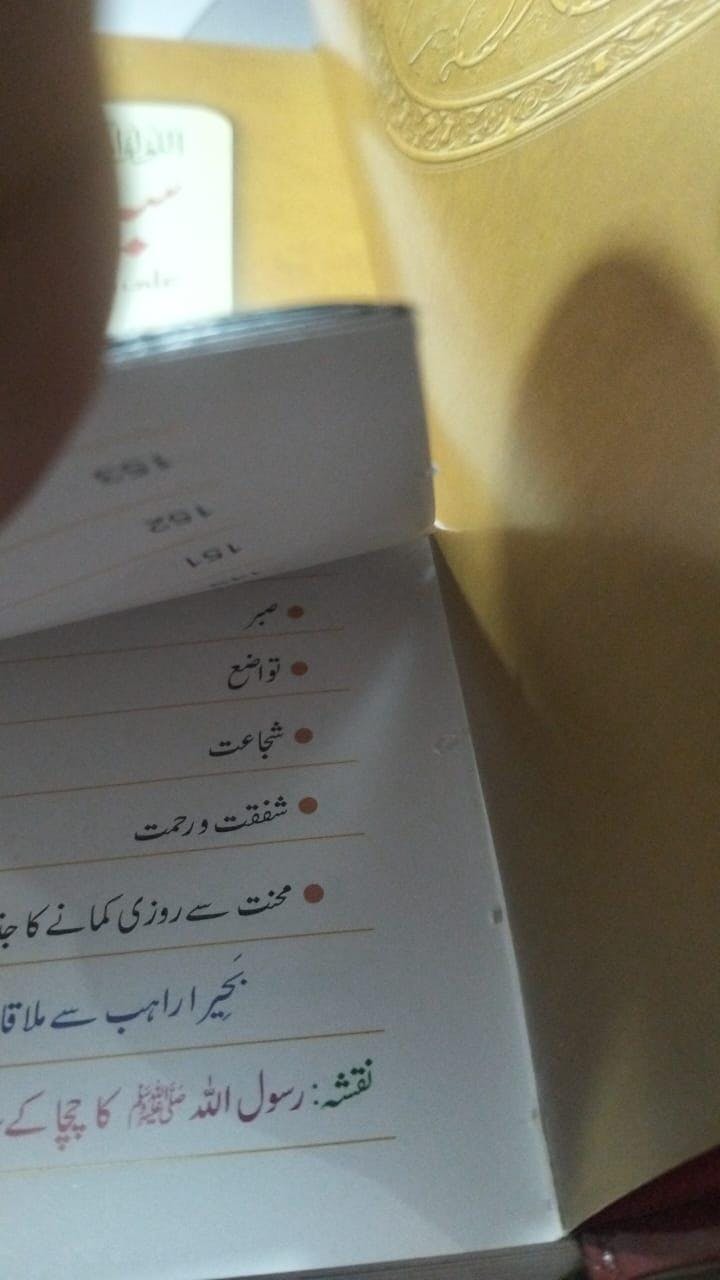 153
152
151
● صبر
● تواضع
● شجاعت
● شفقت و رحمت
● محنت سے روزی کمانے کا
بَحِیرا راہب سے
نقشہ: رسول اللہ ﷺ کا چچا کے